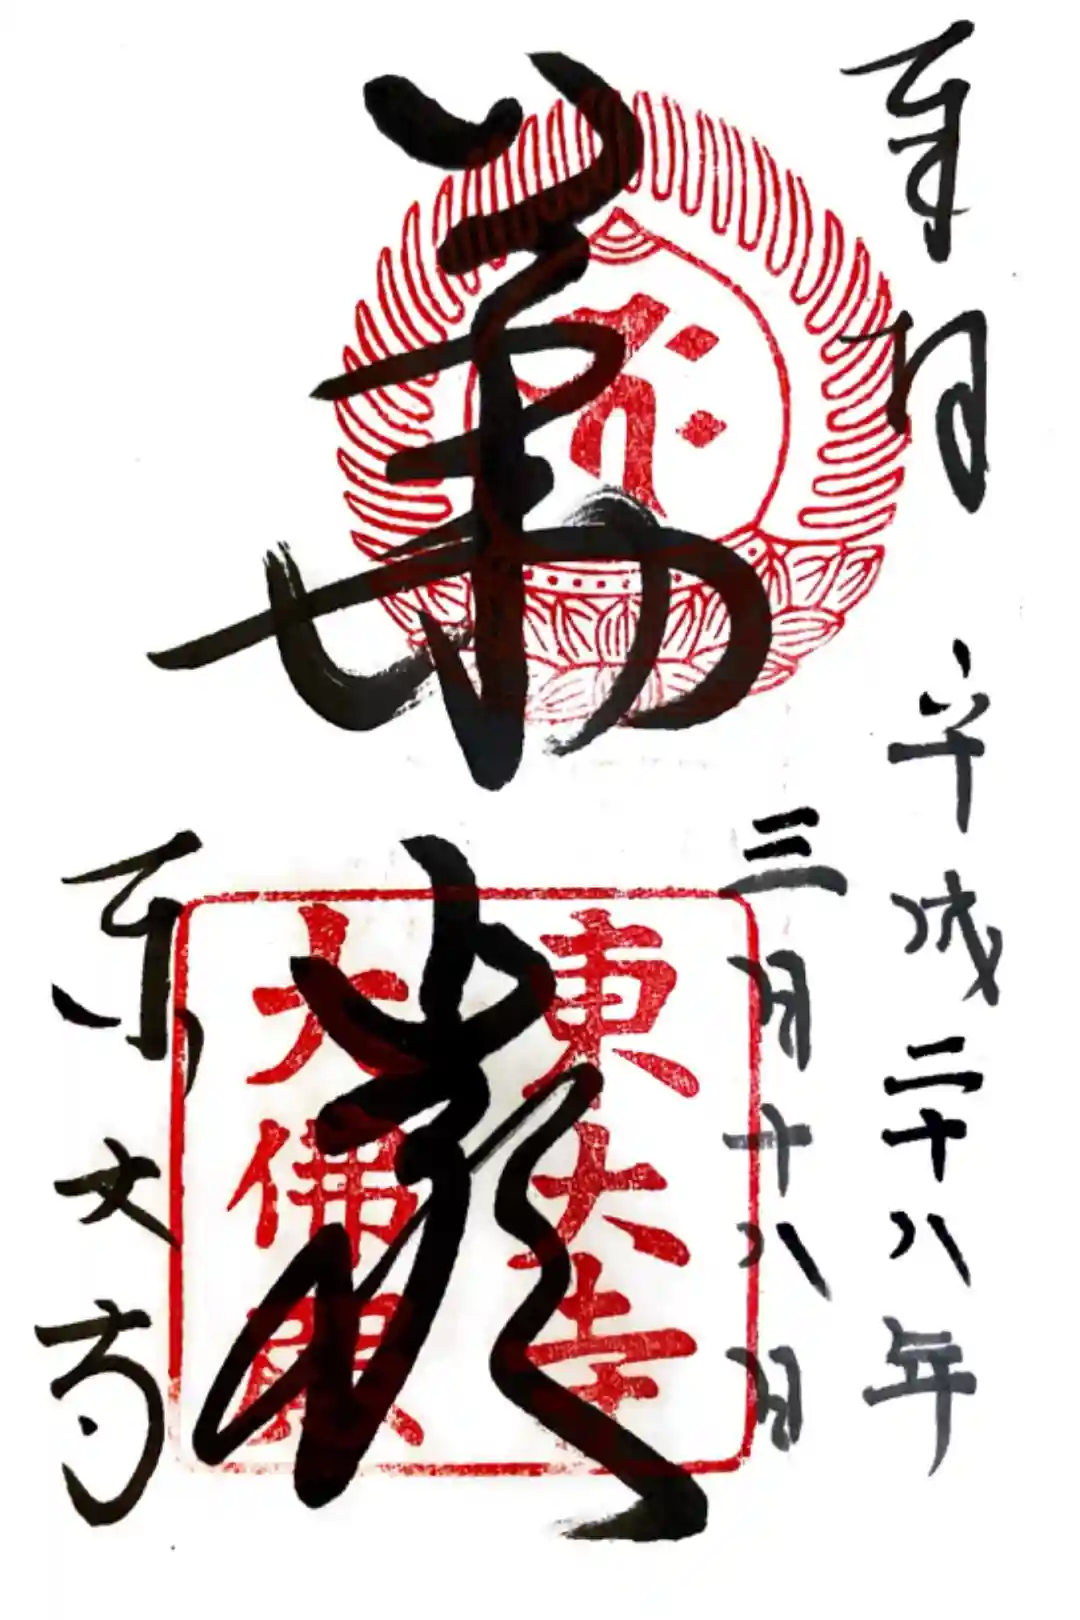 奉拝
平成二十八年
三月十八日
華厳
東大寺
大佛殿
東大寺